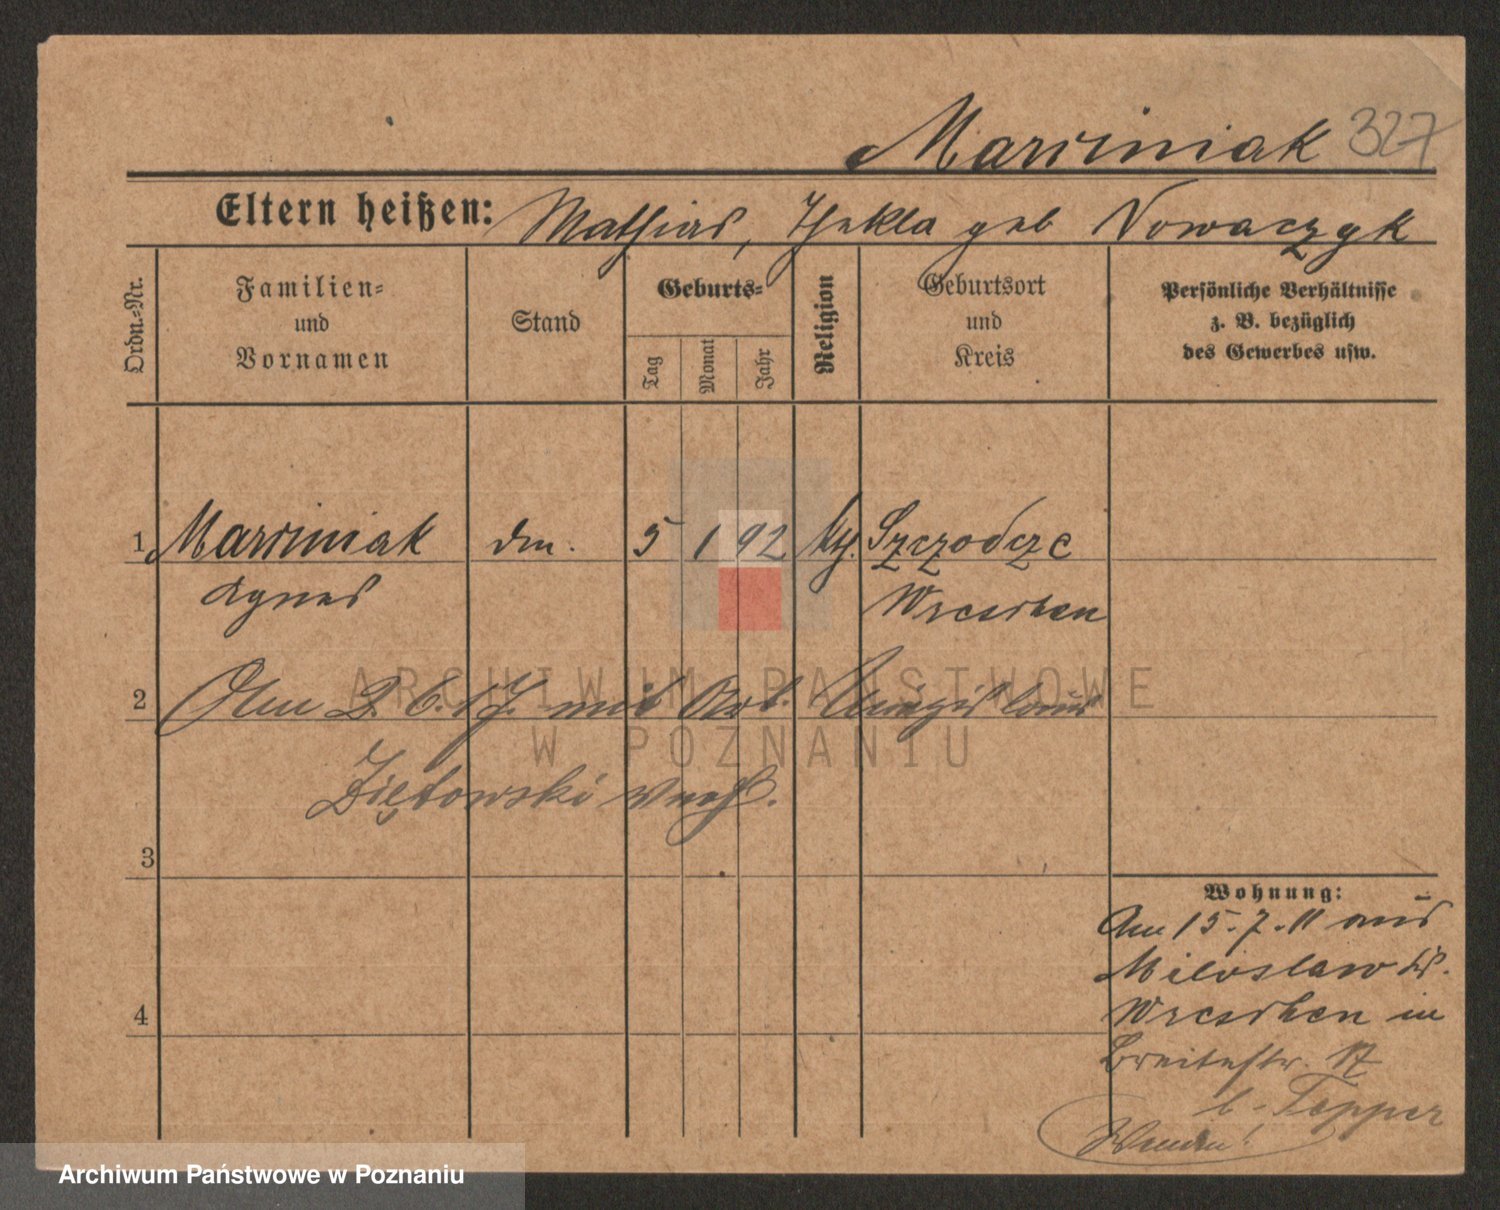 Marciniak 327
Eltern heißen: Mathias, Thekla geb Nowaczyk
Ordn.-Nr.
Familien-
und
Vornamen
Stand
Geburts-
Tag
Monat
Jahr
Religion
Geburtsort
und
Kreis
Persönliche Verhältnisse
z. B. bezüglich
des Gewerbes usw.
1 Marciniak 5 1 92
Agnes Wreschen
2 mit Arb.
Ziętowski
3
Wohnung:
Am 15.7.11 aus
Miloslaw Kr.
4 Wreschen in
Breitestr. 17
b. Tepper
Wenden!
ARCHIWUM PAŃSTWOWE
W POZNANIU
Archiwum Państwowe w Poznaniu